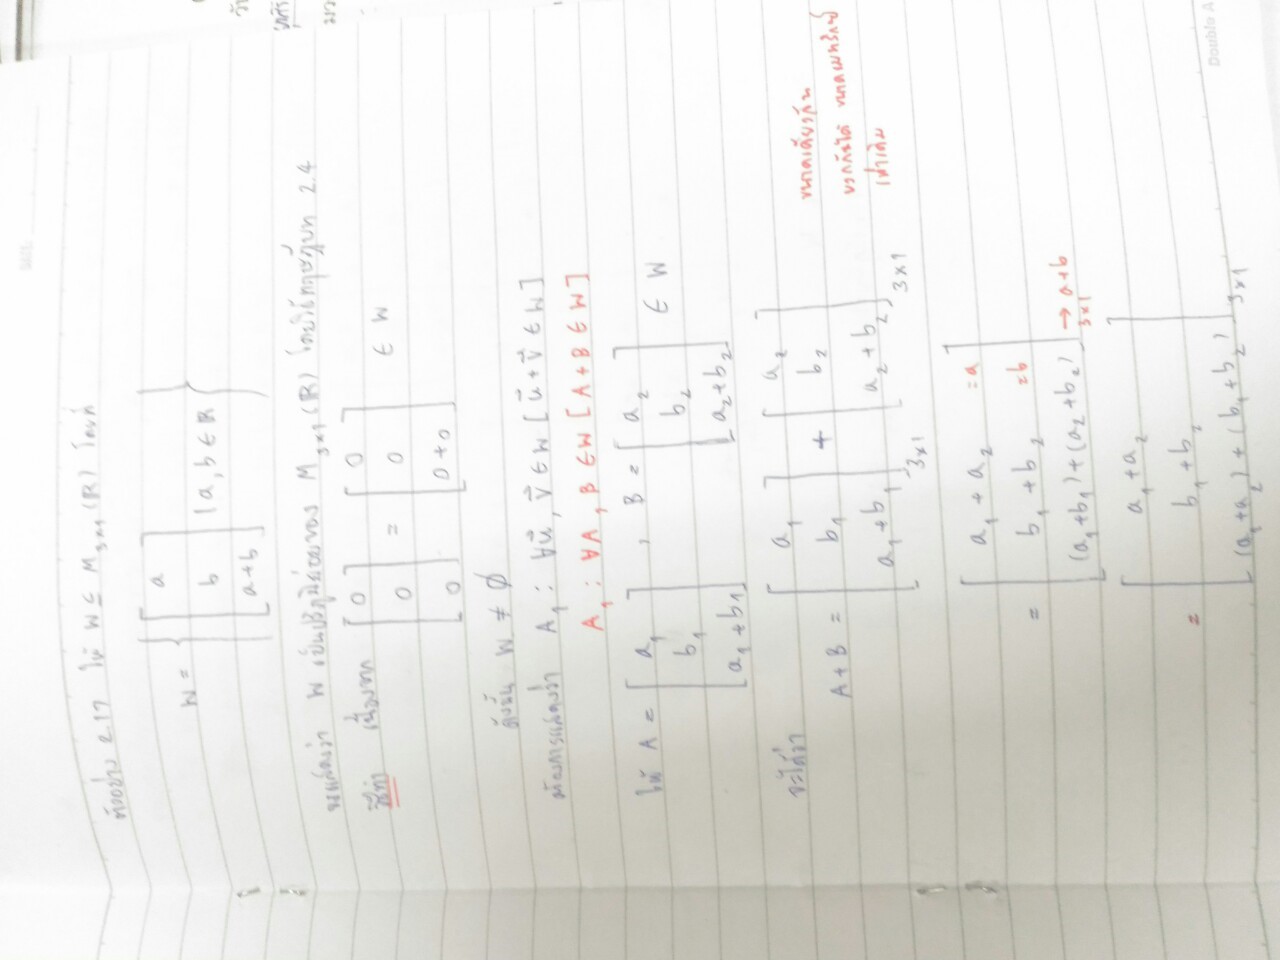 ตัวอย่าง 2.17 ให้ W ⊆ M₃ₓ₁(ℝ) โดยที่
W = { [ a
b
a+b ] | a, b ∈ ℝ }
จะแสดงว่า W เป็นปริภูมิย่อยของ M₃ₓ₁(ℝ) โดยวิธีทฤษฎีบท 2.4
วิธีทำ เนื่องจาก [ 0 0 0 ] = [ 0 0 0+0 ] ∈ W
ดังนั้น W ≠ ∅
ต้องการแสดงว่า A₁ : ∀u⃗, v⃗ ∈ W [ u⃗ + v⃗ ∈ W ]
A₁ : ∀A, B ∈ W [ A + B ∈ W ]
ให้ A = [ a₁ b₁ a₁+b₁ ] , B = [ a₂ b₂ a₂+b₂ ] ∈ W
จะได้ว่า
A + B = [ a₁ b₁ a₁+b₁ ]₃ₓ₁ + [ a₂ b₂ a₂+b₂ ]₃ₓ₁
ขนาดเดียวกัน
บวกกันได้ ขนาดเมทริกซ์
เท่าเดิม
= [ a₁ + a₂ = a
b₁ + b₂ = b
(a₁+b₁)+(a₂+b₂) ]₃ₓ₁ → a+b
= [ a₁+a₂
b₁+b₂
(a₁+a₂)+(b₁+b₂) ]₃ₓ₁
Double A